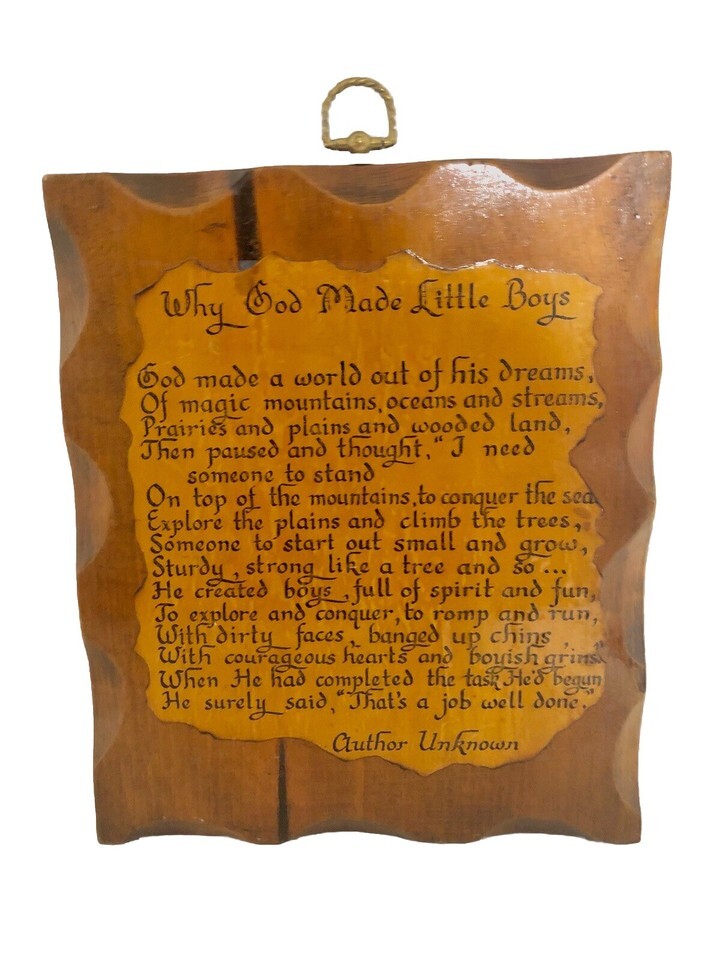 Why God Made Little Boys
God made a world out of his dreams,
Of magic mountains, oceans and streams,
Prairies and plains and wooded land,
Then paused and thought, "I need
someone to stand
On top of the mountains, to conquer the sea
Explore the plains and climb the trees,
Someone to start out small and grow,
Sturdy, strong like a tree and so...
He created boys, full of spirit and fun,
To explore and conquer, to romp and run,
With dirty faces, banged up chins,
With courageous hearts and boyish grins.
When He had completed the task He'd begun
He surely said, "That's a job well done."
Author Unknown